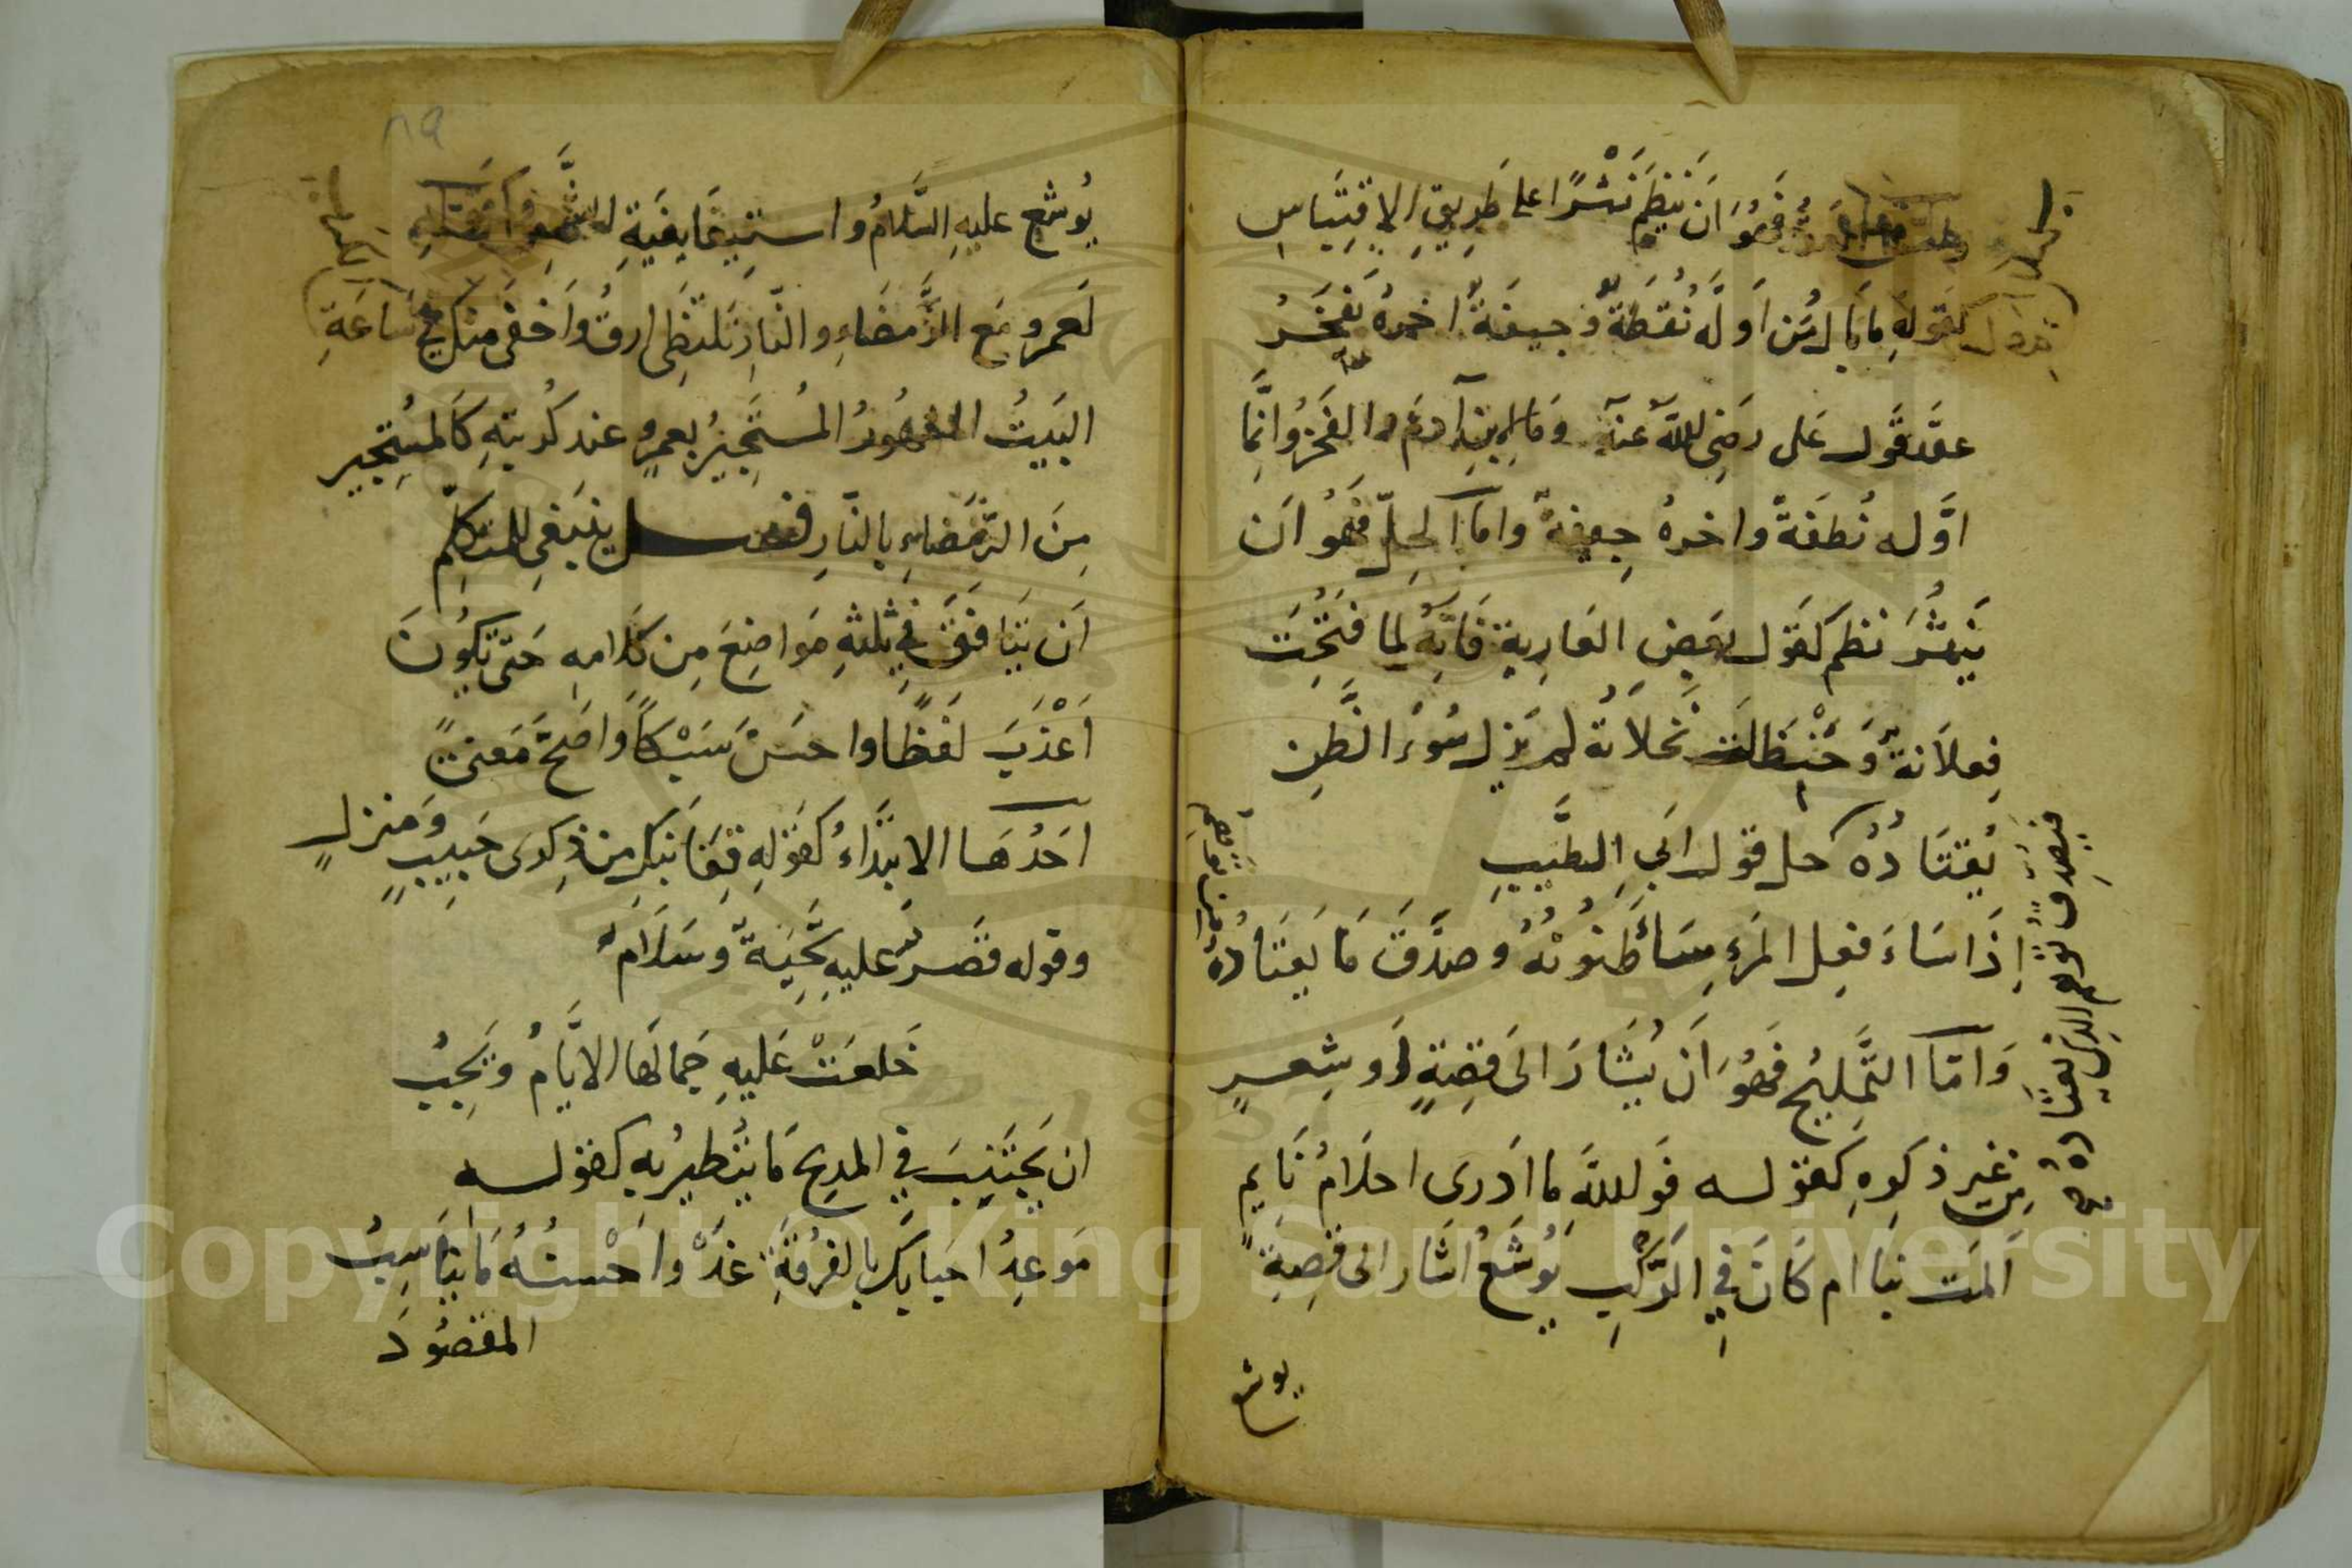 فَهُوَ اَن يَنظِمَ نَثْرًا على طَرِيقِ الاِقتِبَاسِ
كقَولِهِ مَا بَالُ مَن اَوَّلَهُ نُقطَةٌ وَجيفَةٌ اخرهُ يَفخَرُ
عقَدَ قَول عَلى رَضِى اللهُ عَنهُ وَمَا لِابنِ آدمَ والفَخرُ وَانِّمَا
اوَّله نُطفَةً واخرهُ جِيفةٌ وَامّا الحلّ فَهُوَ اَن
يَنثُرَ نظم كقَول بعَضِ المَغارِبةِ فَاِنّهُ لما قَبُحَت
فِعلاَتهُ وَحَنْظَلَت نَخلاَتهُ لم يَزل سُوءُ الظَّنِ
يُقتَادُهُ حل قول ابَي الطَّيّبِ
اِذَا سَاءَ فِعل المَرءِ سَائت ظنُونُهُ وصَدَّقَ مَا يَعتَادُهُ
مِن توَهُّمِ
فَيُصدِّق توَهم الذى يَعتَادُهُ
وَامّا التَّمليُح فَهُوَ اَن يُشَارَ الىَ قِصَّةٍ اَو شِعرٍ
مِن غَيرِ ذكِرهِ كقَوله فَوَ اللهِ مَا ادَرى احلَامُ نَايمٍ
اَلمَت بنَا ام كَانَ فيِ الرَّكبِ يُوشَعُ اشَار الى قِصَّةِ
يوشع
٨٩
يُوشع عليهِ السَّلامُ واستيقَافِهِ الشَّمس وَكقَولِهِ
لَعمرو مَع الرَّمضَاءِ والنّارِ تَلتَظِى ارقُ وَاَحفَى مِنكَ فى سَاعَةِ
الكربِ
البَيتُ المشهُورُ المُستَجيُر بعمرٍو عند كُربتهِ كَالمستَجير
مِنَ الرَّمضَاءِ بالنّارِ فصـل ينبَغىِ للمتكلِّم
اَن يَتَانَقَ فيِ ثلثةِ مَواضِعَ مِن كَلامِه حَتى تكُونَ
اَعْذَبَ لَفظًا واحسَنَ سَبْكًا وَاَصَحَّ مَعنىً
احَدُهَا الابتَداءُ كقَولِهِ قِفَا نبَكِ مِن ذِكرَى حَبيبٍ وَمنزلٍ
وقوله قَصَرٌ عليهِ تَحَّيةٌ وسَلاَمٌ
خَلعَتْ عَليهِ جَمالهَا الايَّامُ وَيَجبُ
ان يَجتنِبَ فيِ المَدِيحِ مَا يتُطيُر بهِ كقوله
مَوعِدُ احبَابِكَ بالفُرقَةِ غَدٌ واَحْسنُهُ مَا يَناَسِبُ
المقصُودَ